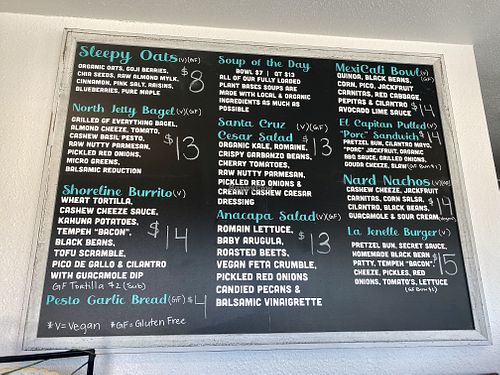 Sleepy Oats (V)(GF)
ORGANIC OATS, GOJI BERRIES,
CHIA SEEDS, RAW ALMOND MYLK,
CINNAMON, PINK SALT, RAISINS,
BLUEBERRIES, PURE MAPLE
$8
North Jetty Bagel (V)(GF)
GRILLED GF EVERYTHING BAGEL,
ALMOND CHEESE, TOMATO,
CASHEW BASIL PESTO,
RAW NUTTY PARMESAN,
PICKLED RED ONIONS,
MICRO GREENS,
BALSAMIC REDUCTION
$13
Shoreline Burrito (V)
WHEAT TORTILLA,
CASHEW CHEEZE SAUCE,
KAHUNA POTATOES,
TEMPEH "BACON",
BLACK BEANS,
TOFU SCRAMBLE,
PICO DE GALLO & CILANTRO
WITH GUACAMOLE DIP
GF Tortilla $2 (Sub)
$14
Pesto Garlic Bread (GF) $4
*V=Vegan *GF=Gluten Free
Soup of the Day
BOWL $7 | QT $13
ALL OF OUR FULLY LOADED
PLANT BASED SOUPS ARE
MADE WITH LOCAL & ORGANIC
INGREDIENTS AS MUCH AS
POSSIBLE
Santa Cruz (V)(GF)
Cesar Salad
ORGANIC KALE, ROMAINE,
CRISPY GARBANZO BEANS,
CHERRY TOMATOES,
RAW NUTTY PARMESAN,
PICKLED RED ONIONS &
CREAMY CASHEW CAESAR
DRESSING
$13
Anacapa Salad (V)(GF)
ROMAIN LETTUCE,
BABY ARUGULA,
ROASTED BEETS,
VEGAN FETA CRUMBLE,
PICKLED RED ONIONS
CANDIED PECANS &
BALSAMIC VINAIGRETTE
$13
MexiCali Bowl (V)
(GF)
QUINOA, BLACK BEANS,
CORN, PICO, JACKFRUIT
CARNITAS, RED CABBAGE,
PEPITAS & CILANTRO
AVOCADO LIME SAUCE
$14
El Capitan Pulled (V)
"Porc" Sandwich
PRETZEL BUN, CILANTRO MAYO,
"PORC" JACKFRUIT, ORGANIC
BBQ SAUCE, GRILLED ONIONS,
GOUDA CHEEZE, SLAW (GF Bun $1)
$14
Nard Nachos (V)(GF)
CASHEW CHEEZE, JACKFRUIT
CARNITAS, CORN SALSA,
CILANTRO, BLACK BEANS,
GUACAMOLE & SOUR CREAM
$14
La Jenelle Burger (V)
PRETZEL BUN, SECRET SAUCE,
HOMEMADE BLACK BEAN
PATTY, TEMPEH "BACON",
CHEEZE, PICKLES, RED
ONIONS, TOMATO'S, LETTUCE
(GF Bun $1)
$15